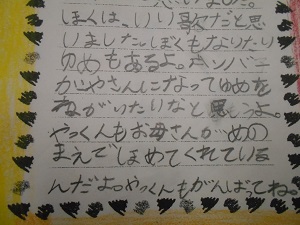 思いました。
ぼくは、いい歌だと思
いましたしぼくもなりたい
ゆめもあるよ。
かしやさんになってゆめを
ねがいたいなと思うよ。
やっくんもお母さんがめの
まえでしめてくれている
んだよ。やっくんもがんばってね。